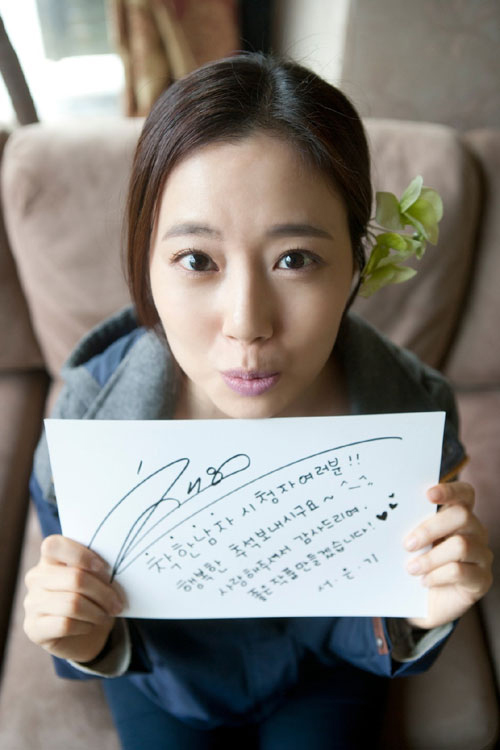 착한남자 시청자여러분!!
행복한 추석보내시구요~ ^_^
사랑해주셔서 감사드리며,
좋은작품만들겠습니다! ♥♥
서.은.기